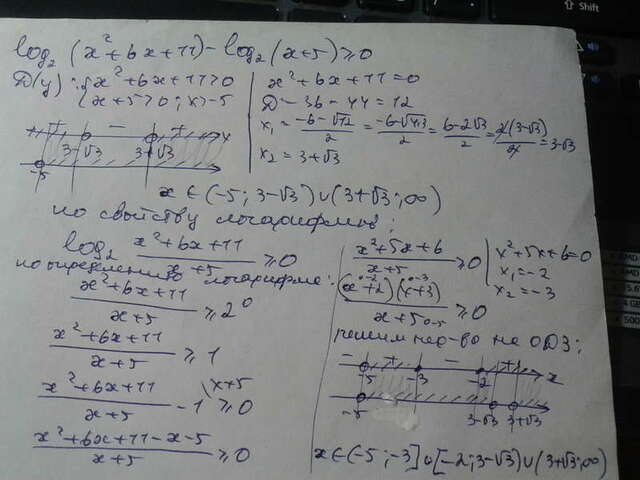 log₂ (x²+6x+11) - log₂ (x+5) ≥ 0
D(y): { x²+6x+11>0
x+5>0; x>-5
x²+6x+11=0
D=36-44=12
x₁ = (-6-√12)/2 = (-6-√4·3)/2 = (6-2√3)/2 = 2(3-√3)/2 = 3-√3
x₂ = 3+√3
+ + - + x
-5 3-√3 3+√3
x ∈ (-5; 3-√3) ∪ (3+√3; ∞)
по свойству логарифмов:
log₂ (x²+6x+11)/(x+5) ≥ 0
по определению логарифма:
(x²+6x+11)/(x+5) ≥ 2⁰
(x²+6x+11)/(x+5) ≥ 1
(x²+6x+11)/(x+5) - 1 \x+5 ≥ 0
(x²+6x+11-x-5)/(x+5) ≥ 0
(x²+5x+6)/(x+5) ≥ 0
x²+5x+6=0
x₁=-2
x₂=-3
(x+2)(x+3)/(x+5) ≥ 0
решим нер-во на ОДЗ:
- + - + x
-5 -3 -2
-5 3-√3 3+√3
x ∈ (-5; -3] ∪ [-2; 3-√3) ∪ (3+√3; ∞)
Shift